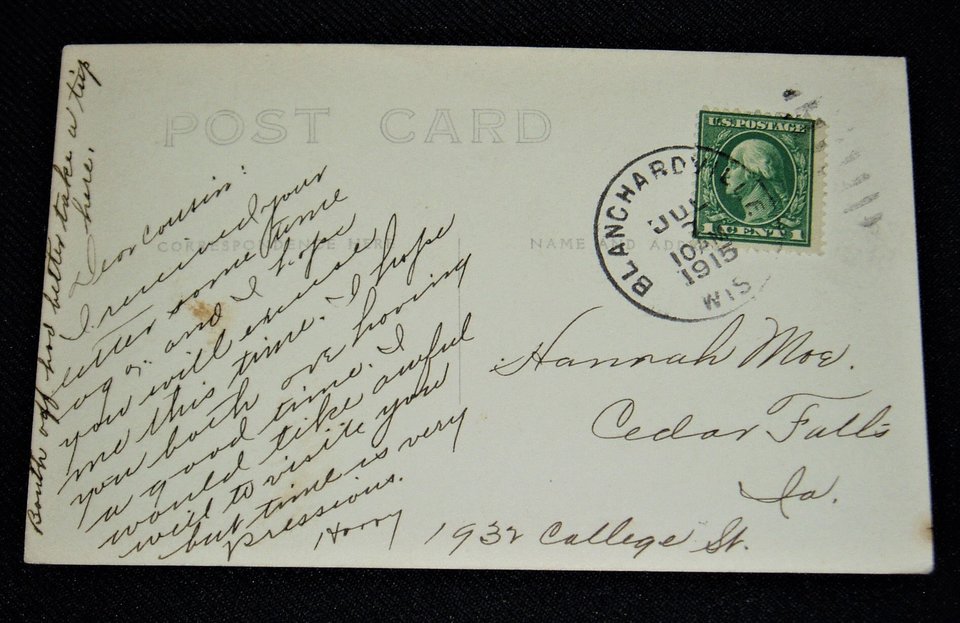 POST CARD
CORRESPONDENCE HERE
NAME AND ADDRESS
U.S. POSTAGE
1 CENT 1
BLANCHARDVILLE
JUN
10 AM
1915
WIS
Dear cousin:
I received your
letter some time
ago and I hope
you will excuse
me this time. I hope
you both are having
a good time. I
would like awful
will to visite you
but time is very
pressious.
Harry
Bouth off had better take a trip
here.
Hannah Moe.
Cedar Falls
Ia.
1932 College St.